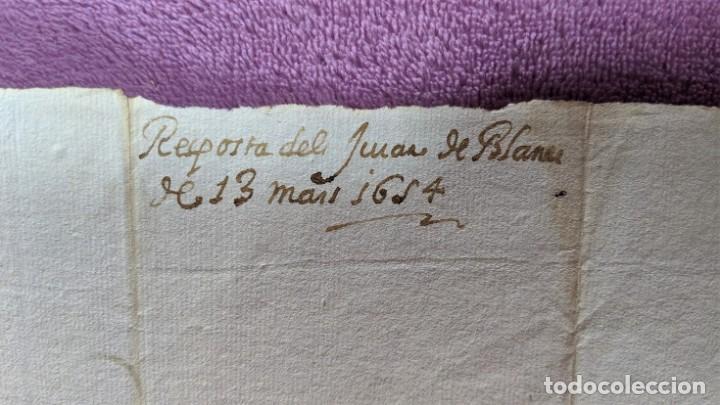 Resposta dels Jurats de Blanes
de 13 mars 1654
todocoleccion